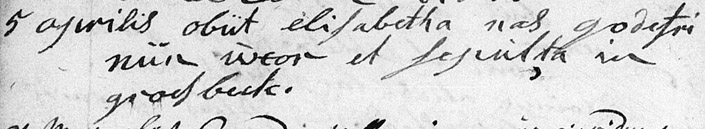 5 aprilis obiit elisabetha nas godefri
niin uxor et sepulta in
groesbeck.